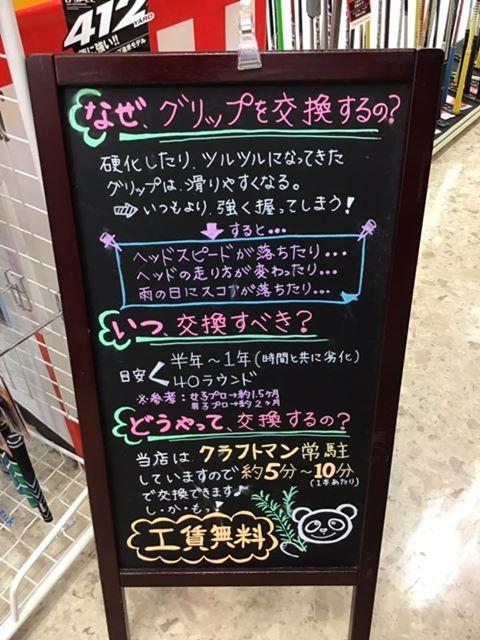 412
YARD
なぜ、グリップを交換するの?
硬化したり、ツルツルになってきた
グリップは、滑りやすくなる。
⇨ いつもより、強く握ってしまう!
すると…
ヘッドスピードが落ちたり…
ヘッドの走り方が変わったり…
雨の日にスコアが落ちたり…
いつ、交換すべき?
目安
半年~1年(時間と共に劣化)
40ラウンド
※参考:女子プロ→約1.5ヶ月
男子プロ→約2ヶ月
どうやって、交換するの?
当店は クラフトマン常駐
していますので 約5分~10分
(1本あたり)
で交換できます♪
し・か・も…!
工賃無料